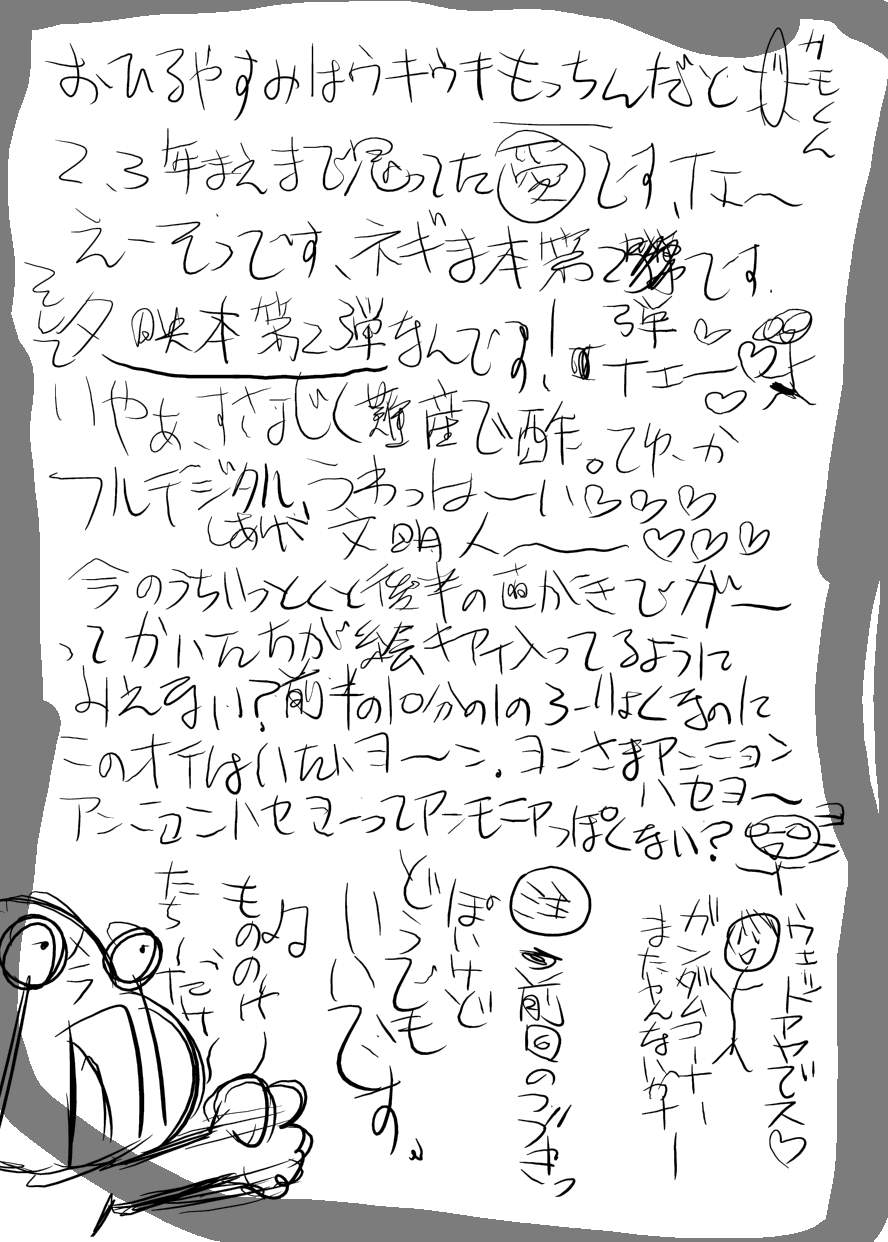 おひるやすみはウキウキもっちんだと
カモくん
2、3年まえまで思ってた愛です、イェ〜
えーそうです、ネギま本第2です。
弾
イェー♡
そして
夕映本第2弾なんです!
いやぁ、すさまじく難産で酢。てゆーか
フルデジタル、うわっはーい♡♡♡
しあげ
文明人〜♡♡♡
今のうちいっとくと後半の画がさびがー
ってかいたんちが絵キアイ入ってるように
みえない?前半の10分の1のろーりょくなのに
このオチはいたいヨ〜ン。ヨンさまアンニョン
ハセヨ〜
アンニョンハセヨーってアンモニアっぽくない?
ウェッドアヤでス♡
ガンダムコーナー
まだやんないかナー
前回のつづきっ
ぽいけど
どうでも
いいです。
もののけ
たち〜だけ